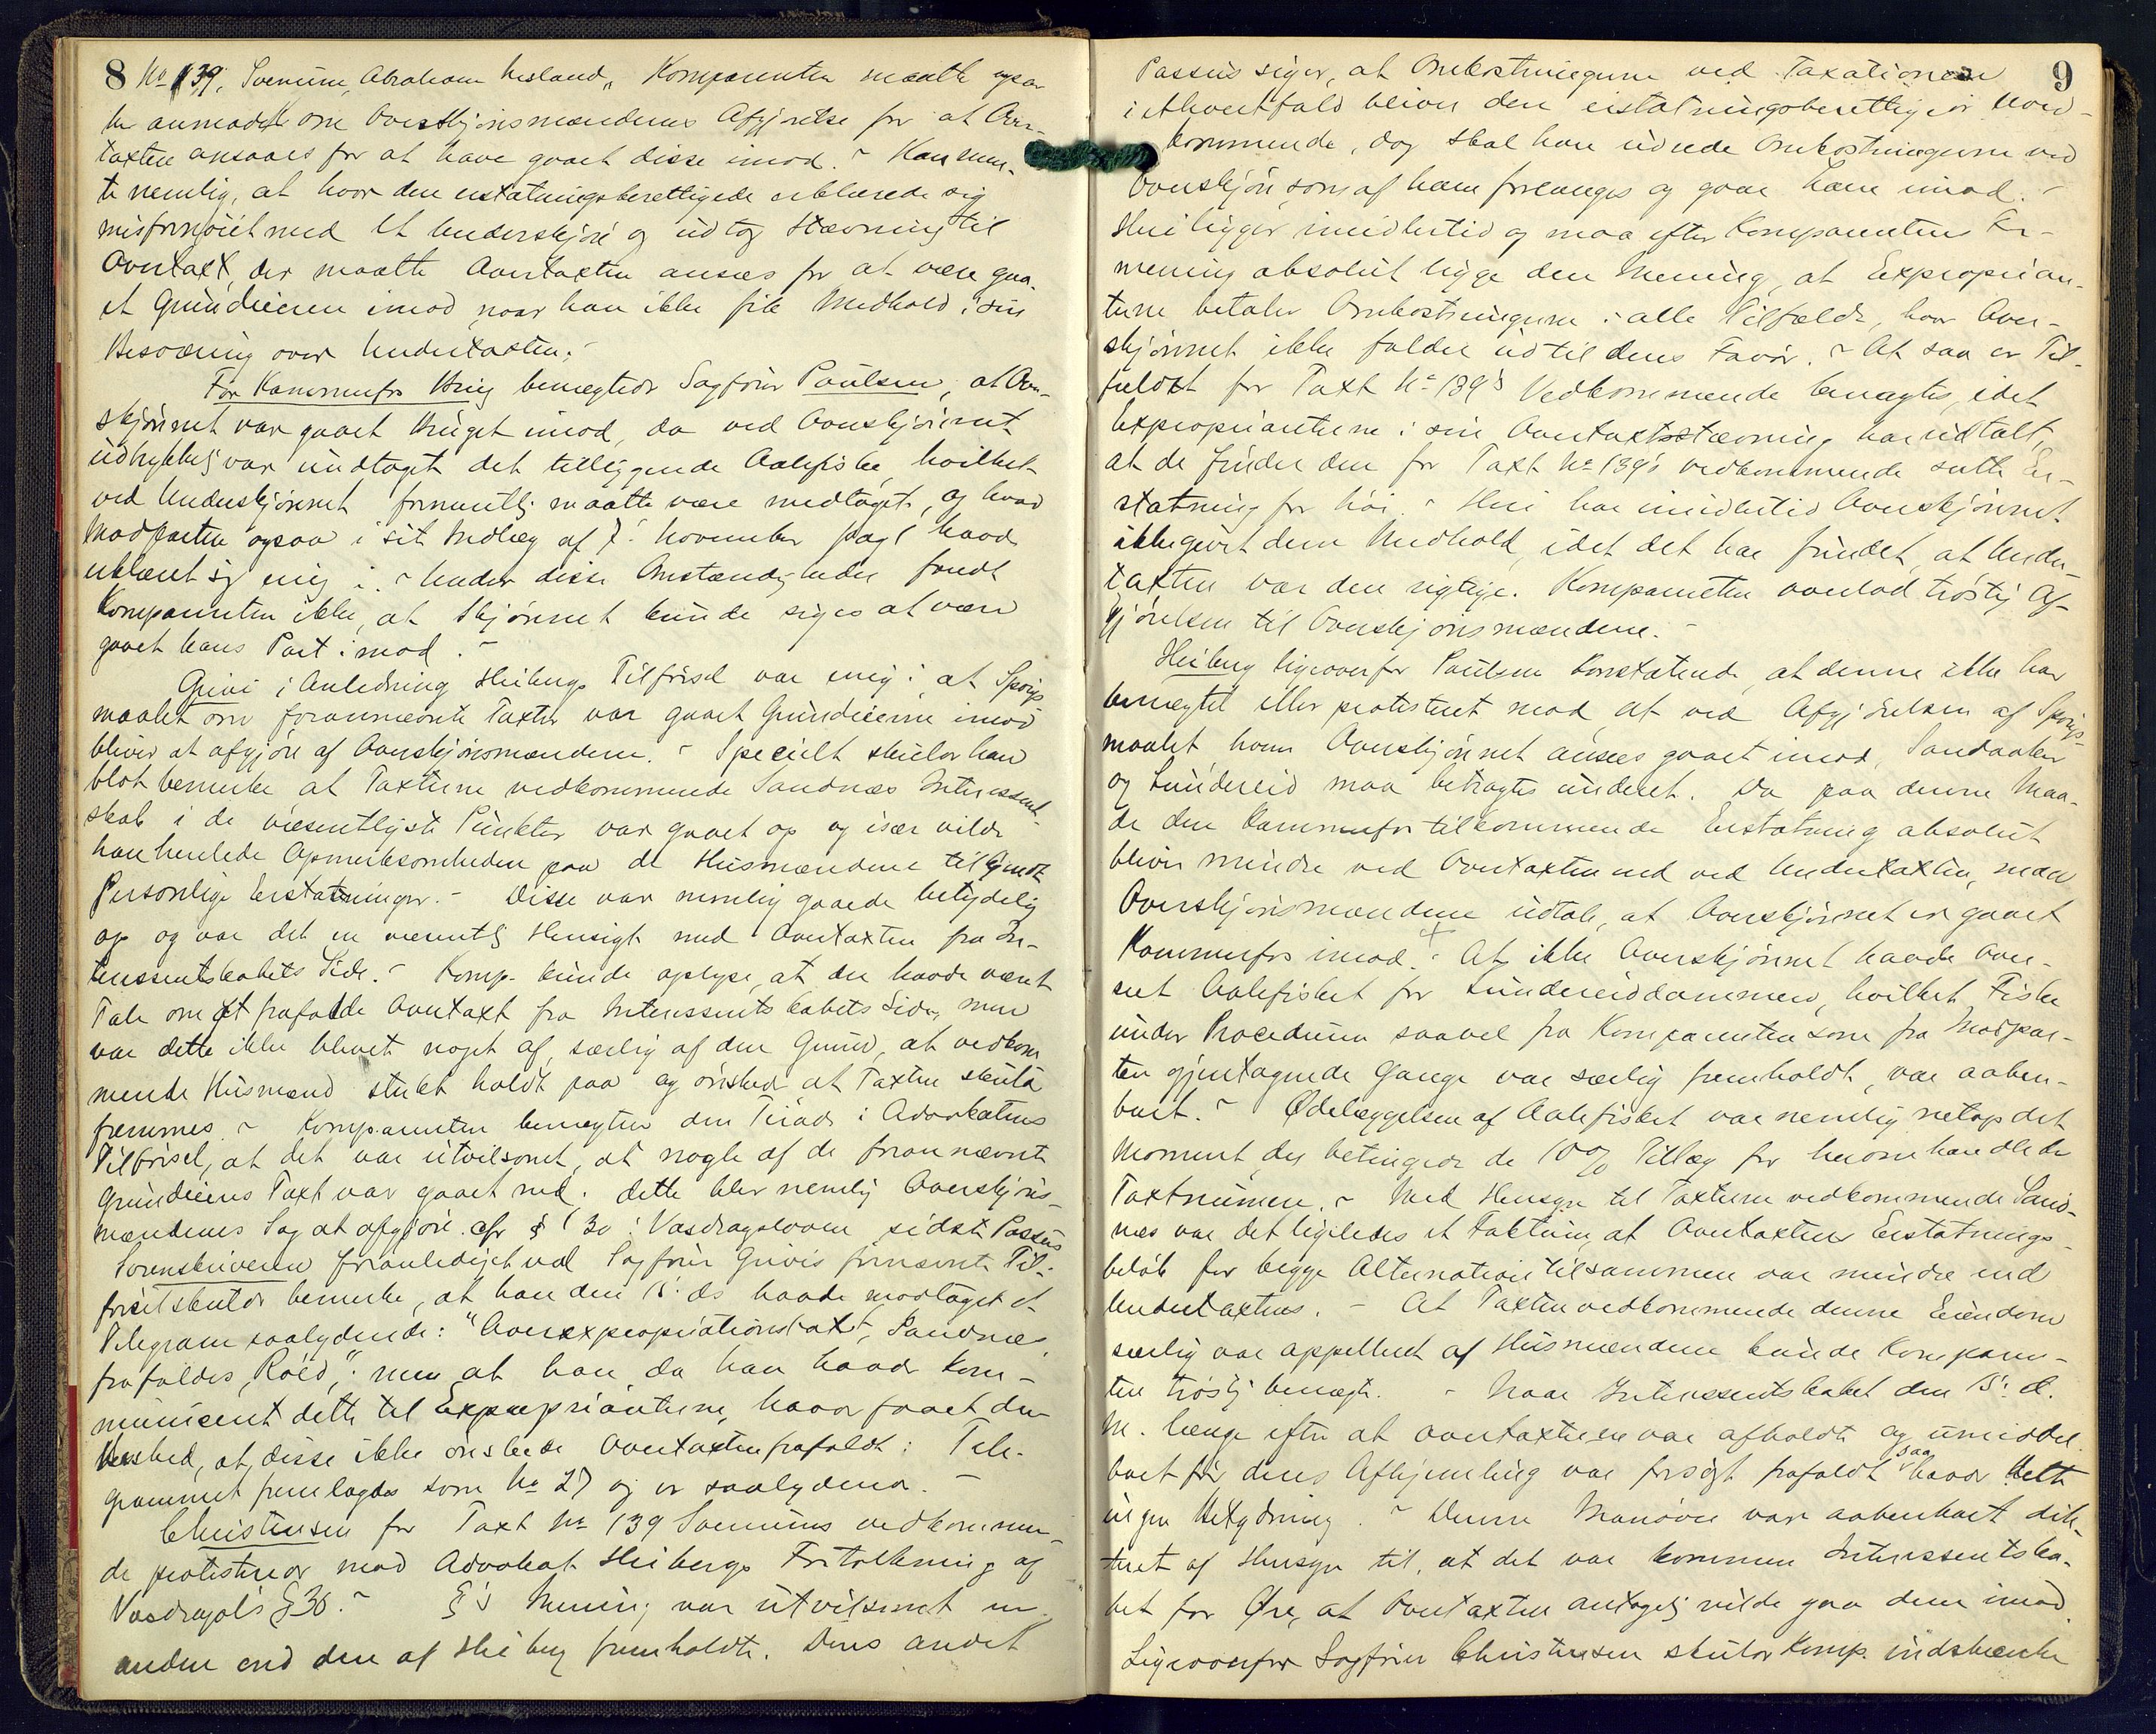 8 No 139, Svenum, Abraham Nesland, Komparenten maatte ogsaa
her anmode om Overskjønsmændenes Afgjørelse for at Over-
taxten ansaaes for at have gaaet disse imod. - Han men-
te nemlig, at hvor den erstatningsberettigede erklærede sig
misfornøiet med et Underskjøn og udtog Stævning til
Overtaxt, der maatte Overtaxten ansees for at være gaa-
et Grundeieren imod naar han ikke fik Medhold i sin
Besværing over Undertaxten. -
For Kammerfr Krag benægtede Sagfører Paulsen, at Over-
skjønnet var gaaet Bruget imod, da ved Overskjønnet
udtrykkelig var undtaget det tilliggende Aalefiske, hvilket
ved Underskjønnet formentlig maatte være medtaget, og hvad
Modparten ogsaa i sit Indlæg af 7. November pag 1 havde
erklæret sig enig i. - Under disse Omstændigheder fandt
Komparenten ikke, at Skjønnet kunde siges at være
gaaet hans Part imod. -
Grivi i Anledning Heibergs Tilførsel var enig i, at Spørgs-
maalet om forannævnte Taxter var gaaet Grundeierne imod
bliver at afgjøre af Overskjønsmændene. - Specielt skulde han
blot bemerke at Taxterne vedkommende Sandnæs Interessent-
skab i de væsentligste Punkter var gaaet op og især vilde
han henlede Opmerksomheden paa de Husmændene tilkjendte
Personlige Erstatninger. - Disse var nemlig gaaede betydelig
op og var det en væsentlig Hensigt med Overtaxten fra In-
teressentskabets Side. - Komp. kunde oplyse, at der havde været
Tale om at frafalde Overtaxt fra Interessentskabets Side, men
var dette ikke blevet noget af, særlig af den Grund, at vedkom
mende Husmænd stærkt holdt paa og ønsked at Taxten skulde
fremmes. - Komparenten benægter den Tirade i Advokatens
Tilførsel, at det var utvilsomt, at nogle af de forannævnte
Grundeieres Taxt var gaaet ned. Dette blev nemlig Overskjøns-
mændenes Sag at afgjøre cfr § 30 i Vasdragsloven sidste Passus
Sorenskriveren foranlediget ved Sagfører Grivis fornævnte Til-
førsel skulde bemerke, at han den 15. ds havde modtaget et
Telegram saalydende: "Overexpropriationstaxt, Sandnæs
frafaldes, Röed", men at han, da han havde kom-
municeret dette til Expropriantene, havde faaet den
Besked, at disse ikke ønskede Overtaxten frafaldt: Tele-
grammet fremlagdes som No 27 og er saalydende. -
Christensen for Taxt No 139 Svenums vedkommen-
de protesterede mod Advokat Heibergs Fortolkning af
Vasdragsl's § 30. - §'s Mening var utvilsomt en
anden end den af Heiberg fremholdte. Dens andet
Passus siger, at Omkostningerne ved Taxationen 9
i ethvert fald bliver den erstatningsberettigede uved-
kommende, dog skal han udrede Omkostningerne ved
Overskjøn, som af ham forlanges og gaar ham imod. -
Heri ligger imidlertid og maa efter Komparentens For-
mening absolut ligge den Mening, at Exproprian-
terne betaler Omkostningerne i alle Tilfælde, hvor Over-
skjønnet ikke falder ud til dens Favør. - At saa er Til-
fældet for Taxt No 139's Vedkommende benægtes, idet
Expropriantene i sin Overtaxtstævning har udtalt,
at de finder den for Taxt No 139's vedkommende satte Er-
statning for høi. - Heri har imidlertid Overskjønnet
ikke givet dem Medhold, idet det har fundet, at Under-
taxten var den rigtige. Komparenten overlod trøstig Af-
gjørelsen til Overskjønsmændene. -
Heiberg ligeoverfor Paulsen konstaterede, at denne ikke har
benægtet eller protesteret mod at ved Afgjørelsen af Spørgs-
maalet, hvem Overskjønnet ansees gaaet imod, Sandaaker
og Lundereid maa betragtes underet. Da paa denne Maa-
de den Kammerfr tilkommende Erstatning absolut
bliver mindre ved Overtaxten end ved Undertaxten, maa
Overskjønsmændene udtale, at Overskjønnet er gaaet
Kammerfr imod. - At ikke Overskjønnet havde over-
set Aalefisket for Lundereiddammen, hvilket Fiske
under Proceduren saavel fra Komparenten som fra Modpar-
ten gjentagende Gange var særlig fremholdt, var aaben-
bart. - Ødelæggelsen af Aalefisket var nemlig netop det
Moment, der betingede de 10% Tillæg for heromhandlede
Taxtnummer. - Med Hensyn til Taxterne vedkommende Sand-
næs var det ligeledes et Faktum, at Overtaxtens Erstatnings-
beløb for begge Alternativer tilsammen var mindre end
Undertaxtens. - At Taxten vedkommende denne Eiendom
særlig var appelleret af Husmændene kunde Komparen-
ten trøstig benægte. - Naar Interessentskabet den 15. d.
M. længe efter at overtaxten var afholdt og umiddel-
bart før dens Afhjemling var forsøgt frafaldt saa havde dette
ingen Betydning. - Denne Manøvre var aabenbart dik-
teret af Hensyn til, at det var kommen Interessentska-
bet for Øre, at Overtaxten antagelig vilde gaa dem imod.
Ligeoverfor Sagfører Christensen skulde Komp. indskrænke